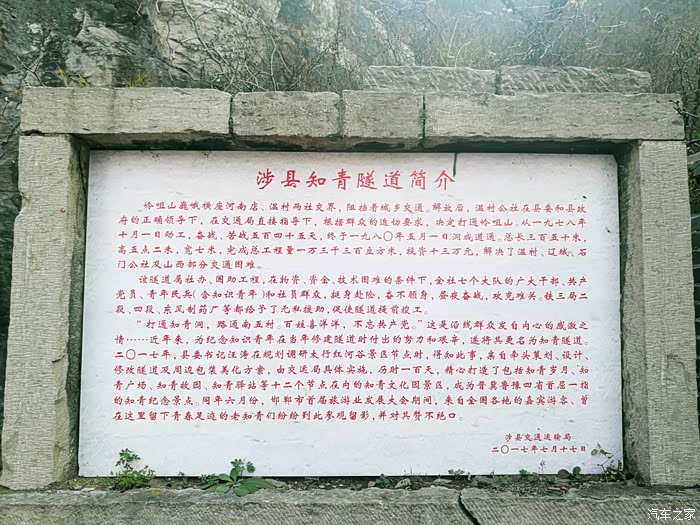 涉县知青隧道简介
岭咀山巍峨横座河南店、温村两社交界,阻挡着城乡交通。解放后,温村公社在县委和县政
府的正确领导下,在交通局直接指导下,根据群众的迫切要求,决定打通岭咀山。从一九七八年
十月一日动工,奋战、苦战五百四十五天,终于一九八〇年五月一日洞成道通。总长三百五十米,
高五点二米,宽七米,完成总工程量一万三千三百立方米,投资十三万元,解决了温村、辽城、石
门公社及山西部分交通困难。
该隧道属社办、国助工程,在物资、资金、技术困难的条件下,全社七个大队的广大干部、共产
党员、青年民兵(含知识青年)和社员群众,挺身赴险,奋不顾身,昼夜奋战,攻克难关。铁三局二
段、四段、东风制药厂等都给予了无私援助,促使隧道提前竣工。
“打通知青洞,路通南五村。百姓喜洋洋,不忘共产党。”这是沿线群众发自内心的感激之
情……近年来,为纪念知识青年在当年修建隧道时付出的努力和艰辛,遂将其更名为知青隧道。
二〇一七年,县委书记汪涛在规划调研太行红河谷景区节点时,得知此事,亲自牵头策划、设计、
修改隧道及周边包装美化方案,由交运局具体实施,历时一百天,精心打造了包括知青岁月、知
青广场、知青故园、知青驿站等十二个节点在内的知青文化园景区,成为晋冀鲁豫四省首屈一指
的知青纪念景点。同年六月份,邯郸市首届旅游业发展大会期间,来自全国各地的嘉宾游客、曾
在这里留下青春足迹的老知青们纷纷到此参观留影,并对其赞不绝口。
涉县交通运输局
二〇一七年七月十七日
汽车之家